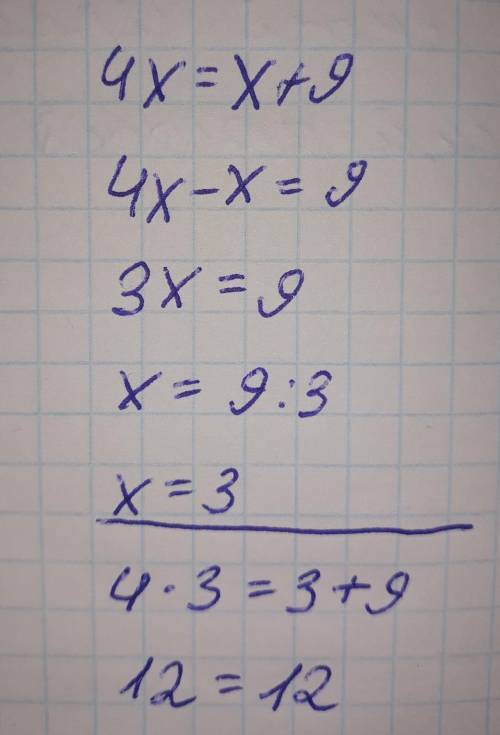 4x=x+9
4x-x=9
3x=9
x=9:3
x=3
4·3=3+9
12=12